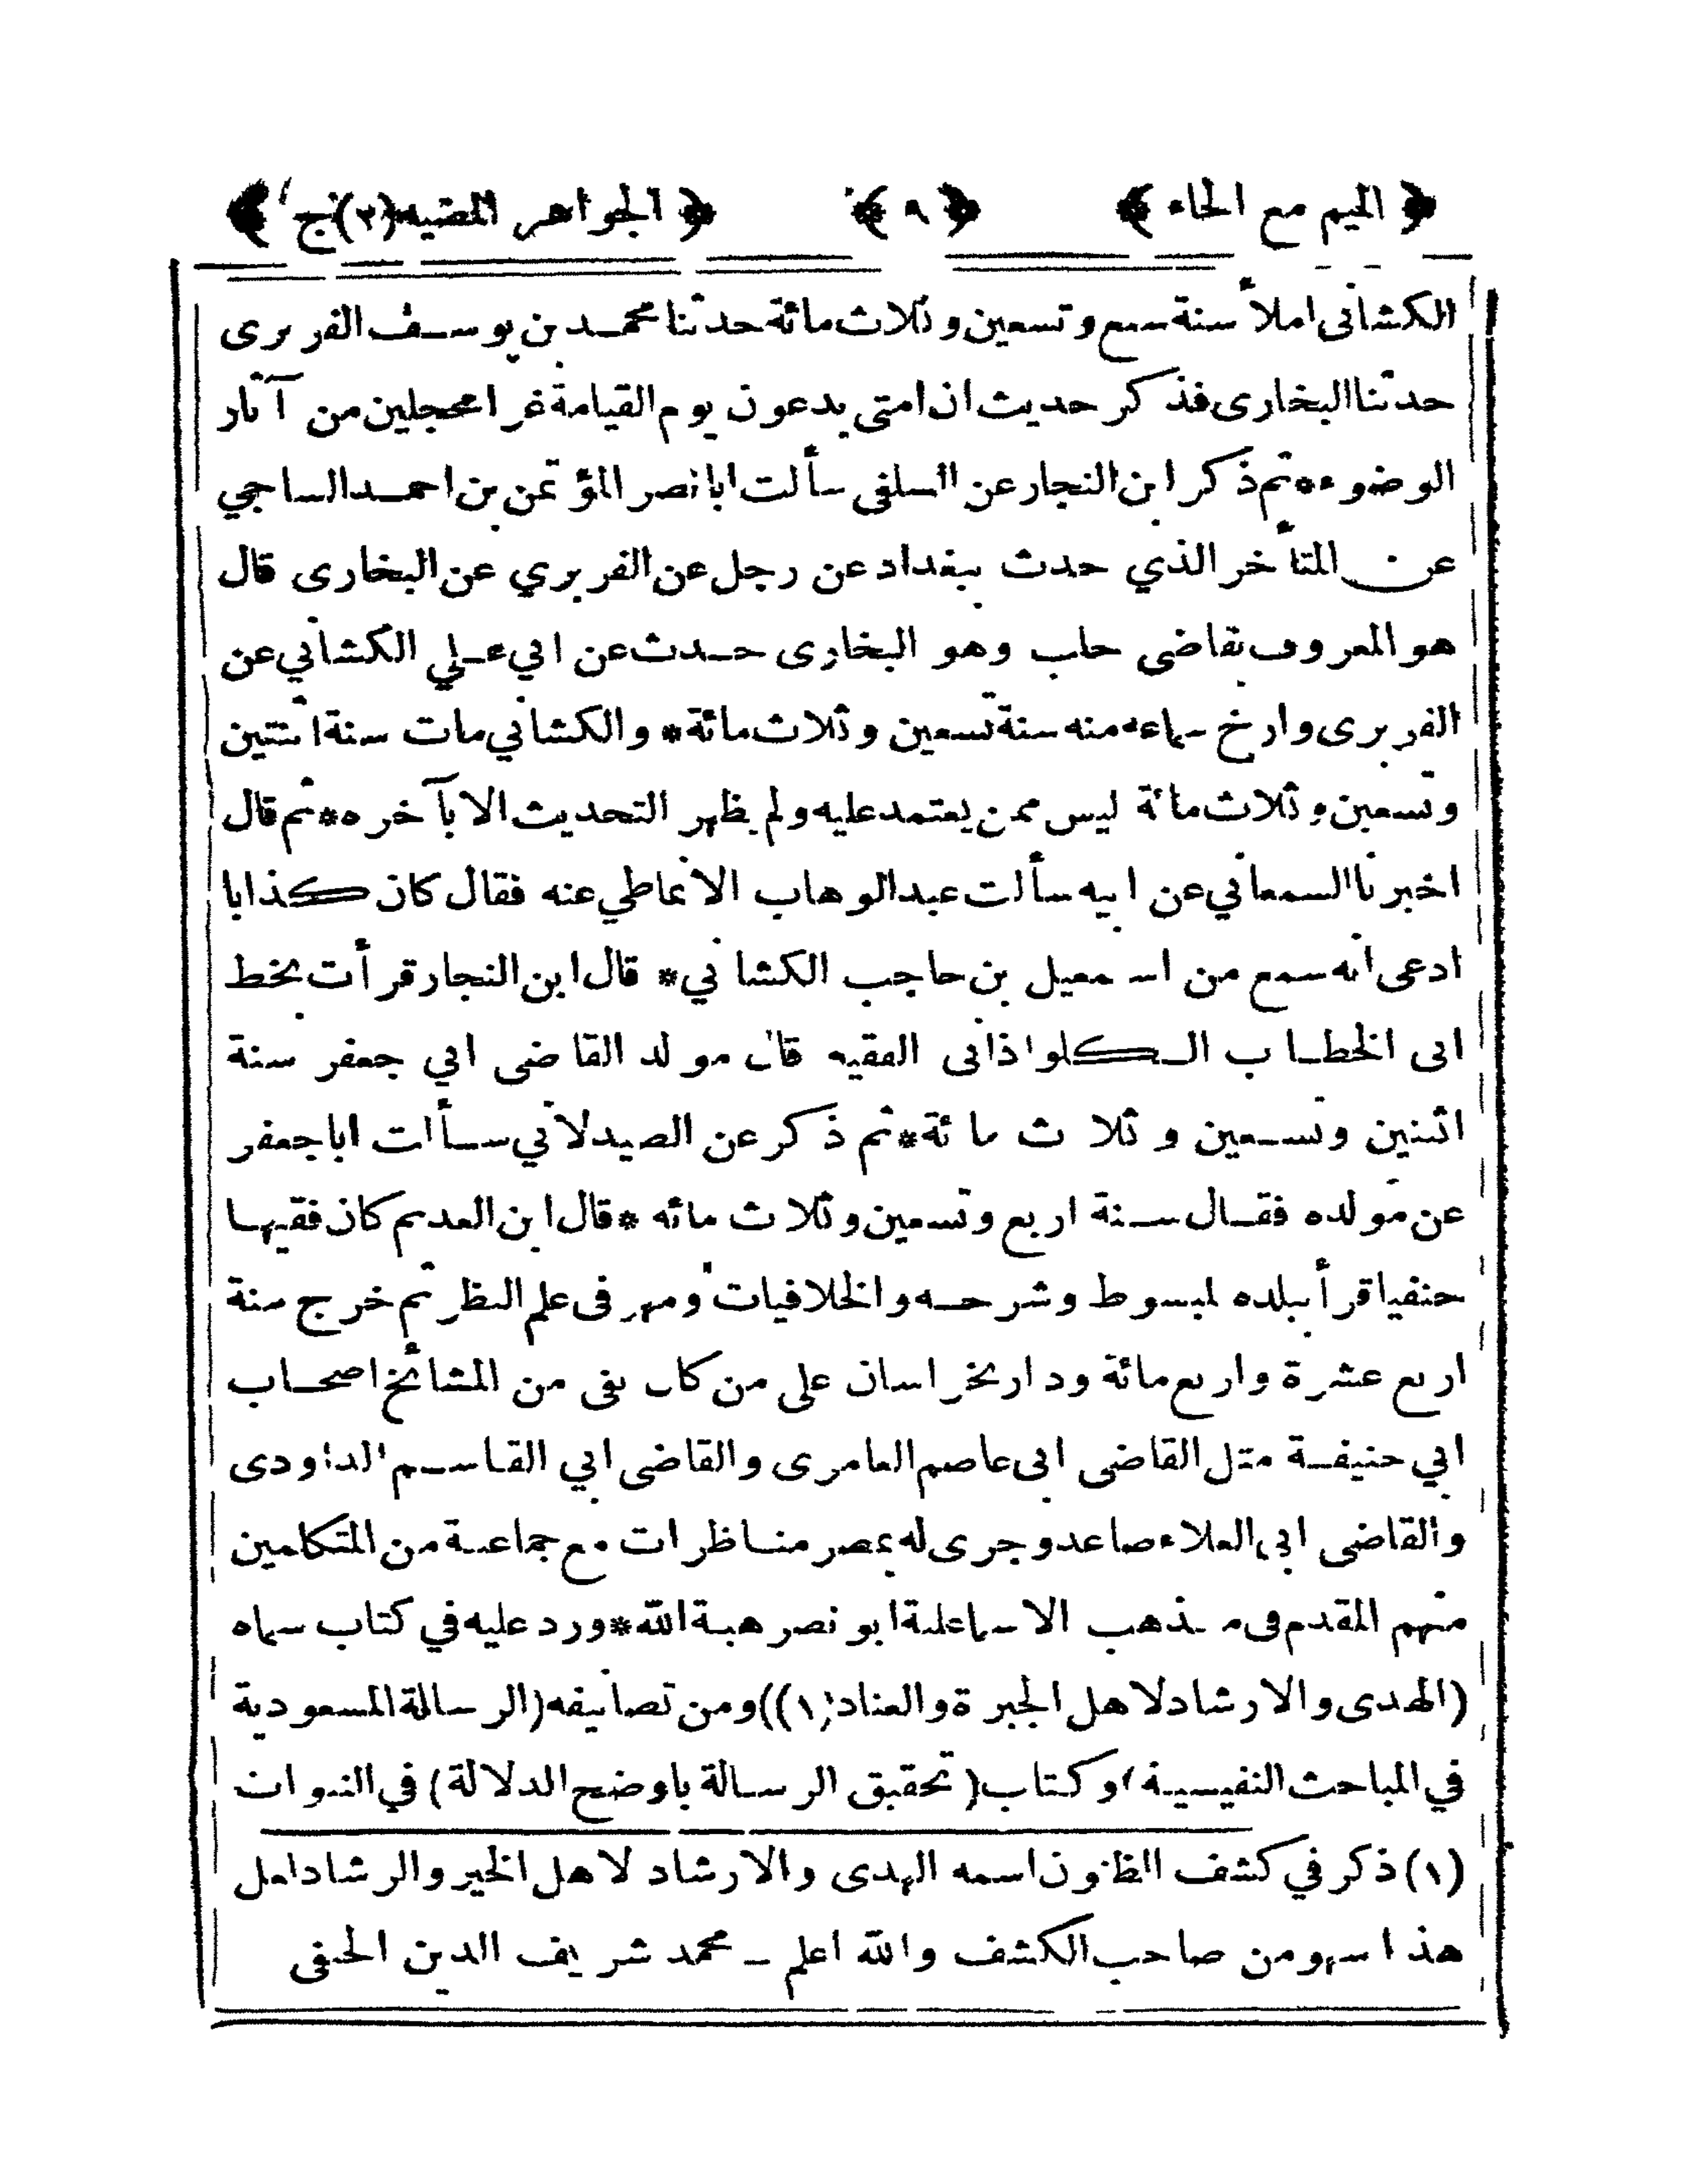 ﴿ الميم مع الحاء ﴾ ﴿ ٩ ﴾ ﴿ الجواهر المضيه (٢) ج ﴾
الكشانى املأ سنة سبع وتسعين وثلاث مائة حدثنا محمد بن يوسف الفربرى
حدثنا البخارى فذكر حديث ان امتى يدعون يوم القيامة غرا محجلين من آثار
الوضوء * ثم ذكر ابن النجار عن السلفى سألت ابا نصر المؤتمن بن احمد الساجي
عن المتأخر الذي حدث ببغداد عن رجل عن الفربري عن البخارى قال
هو المعروف بقاضى حلب وهو البخارى حدث عن ابي علي الكشاني عن
الفربرى وارخ سماعه منه سنة تسعين وثلاث مائة * والكشاني مات سنة اثنتين
وتسعين وثلاث مائة ليس ممن يعتمد عليه ولم يظهر التحديث الا بآخره * ثم قال
اخبرنا السمعاني عن ابيه سألت عبد الوهاب الانماطي عنه فقال كان كذابا
ادعى انه سمع من اسمعيل بن حاجب الكشاني * قال ابن النجار قرأت بخط
ابى الخطاب الكلواذانى الفقيه قال مولد القاضى ابي جعفر سنة
اثنين وتسعين وثلاث مائة * ثم ذكر عن الصيدلاني سألت ابا جعفر
عن مولده فقال سنة اربع وتسعين وثلاث مائه * قال ابن العديم كان فقيها
حنفيا قرأ ببلده لمبسوط وشرحه والخلافيات ومهر فى علم النظر ثم خرج سنة
اربع عشرة واربع مائة ودار بخراسان على من كان بقى من المشائخ اصحاب
ابي حنيفة مثل القاضى ابى عاصم العامرى والقاضى ابي القاسم الداودى
والقاضى ابي العلاء صاعد وجرى له بمصر مناظرات مع جماعة من المتكلمين
منهم المقدم فى مذهب الاسماعلية ابو نصر هبة الله * ورد عليه في كتاب سماه
(الهدى والارشاد لاهل الجبرة والعناد (١)) ومن تصانيفه (الرسالة المسعودية
في المباحث النفيسية) وكتاب (تحقيق الرسالة باوضح الدلالة) في النبوات
(١) ذكر في كشف الظنون اسمه الهدى والارشاد لاهل الخير والرشاد لعل
هذا سهو من صاحب الكشف والله اعلم ــ محمد شريف الدين الحنفى